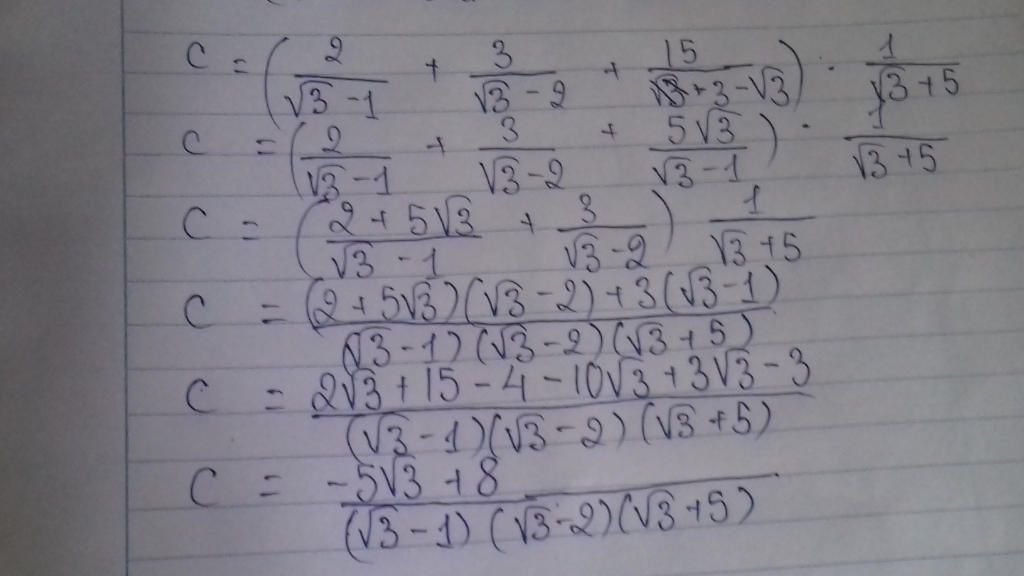 C = (2/(√3 - 1) + 3/(√3 - 2) + 15/(√3 + 3 - √3)) · 1/(√3 + 5)
C = (2/(√3 - 1) + 3/(√3 - 2) + 5√3/(√3 - 1)) · 1/(√3 + 5)
C = ((2 + 5√3)/(√3 - 1) + 3/(√3 - 2)) 1/(√3 + 5)
C = ((2 + 5√3)(√3 - 2) + 3(√3 - 1))/((√3 - 1)(√3 - 2)(√3 + 5))
C = (2√3 + 15 - 4 - 10√3 + 3√3 - 3)/((√3 - 1)(√3 - 2)(√3 + 5))
C = (-5√3 + 8)/((√3 - 1)(√3 - 2)(√3 + 5))